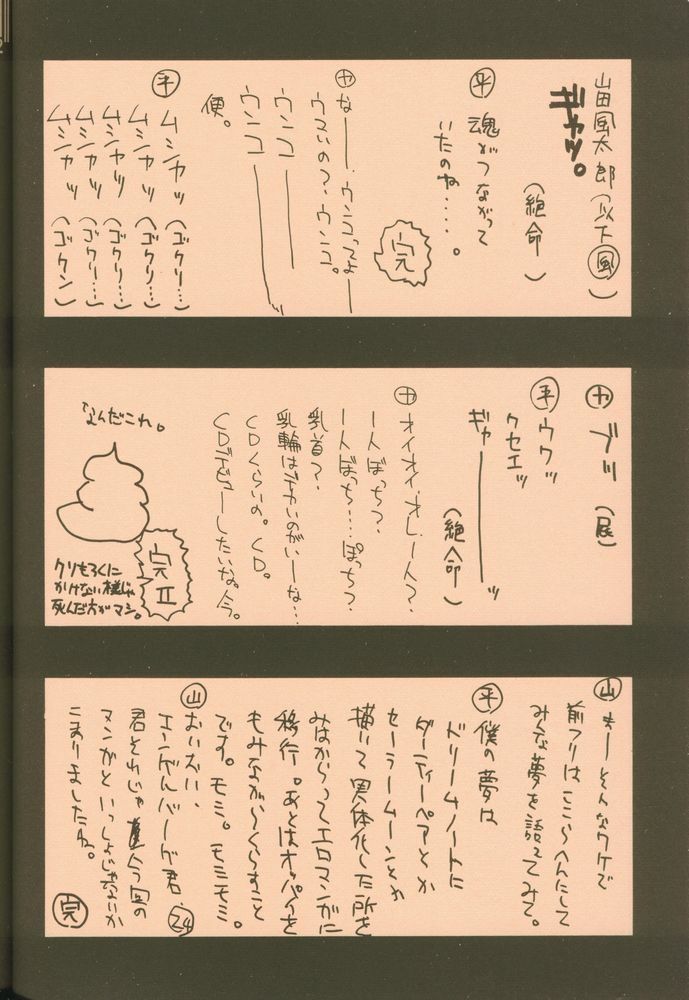 山田風太郎(以下風)
ギャッ。
(絶命)
平 魂がつながって
いたのね・・・・。
完
カ なーー、ウンコってよーー
ウマいの?、ウンコ。
ウンコーーー
ウンコーーー
便。
平 ムシャッ (ゴクリ…)
ムシャッ (ゴクリ…)
ムシャッ (ゴクリ…)
ムシャッ (ゴクリ…)
ムシャッ (ゴクン)
カ ブッ (屁)
平 ウウッ
クセエッ
ギャーーーッ
(絶命)
カ オイオイ、オレ一人?、
一人ぼっち?、
一人ぼっち…ぽっち?、
乳首?、
乳輪はデカいのがいーな…
CDくらいの。CD。
CDデビューしたいな。今。
なんだこれ。
完II
クリもろくに
かけない様じゃ
死んだ方がマシ。
山 まーそんなワケで
前フリはここらへんにして
みんな夢を語ってみて。
平 僕の夢は
ドリームノートに
ダーティーペアとか
セーラームーンとか
描いて実体化した所を
みはからってエロマンガに
移行。あとはオッパイを
もみながらくらすこと
です。モミ。モミモミ。
山 おいおい、
エンゲルバーグ君、24
君それじゃ今回の
マンガといっしょじゃないか
こまりましたね。
完